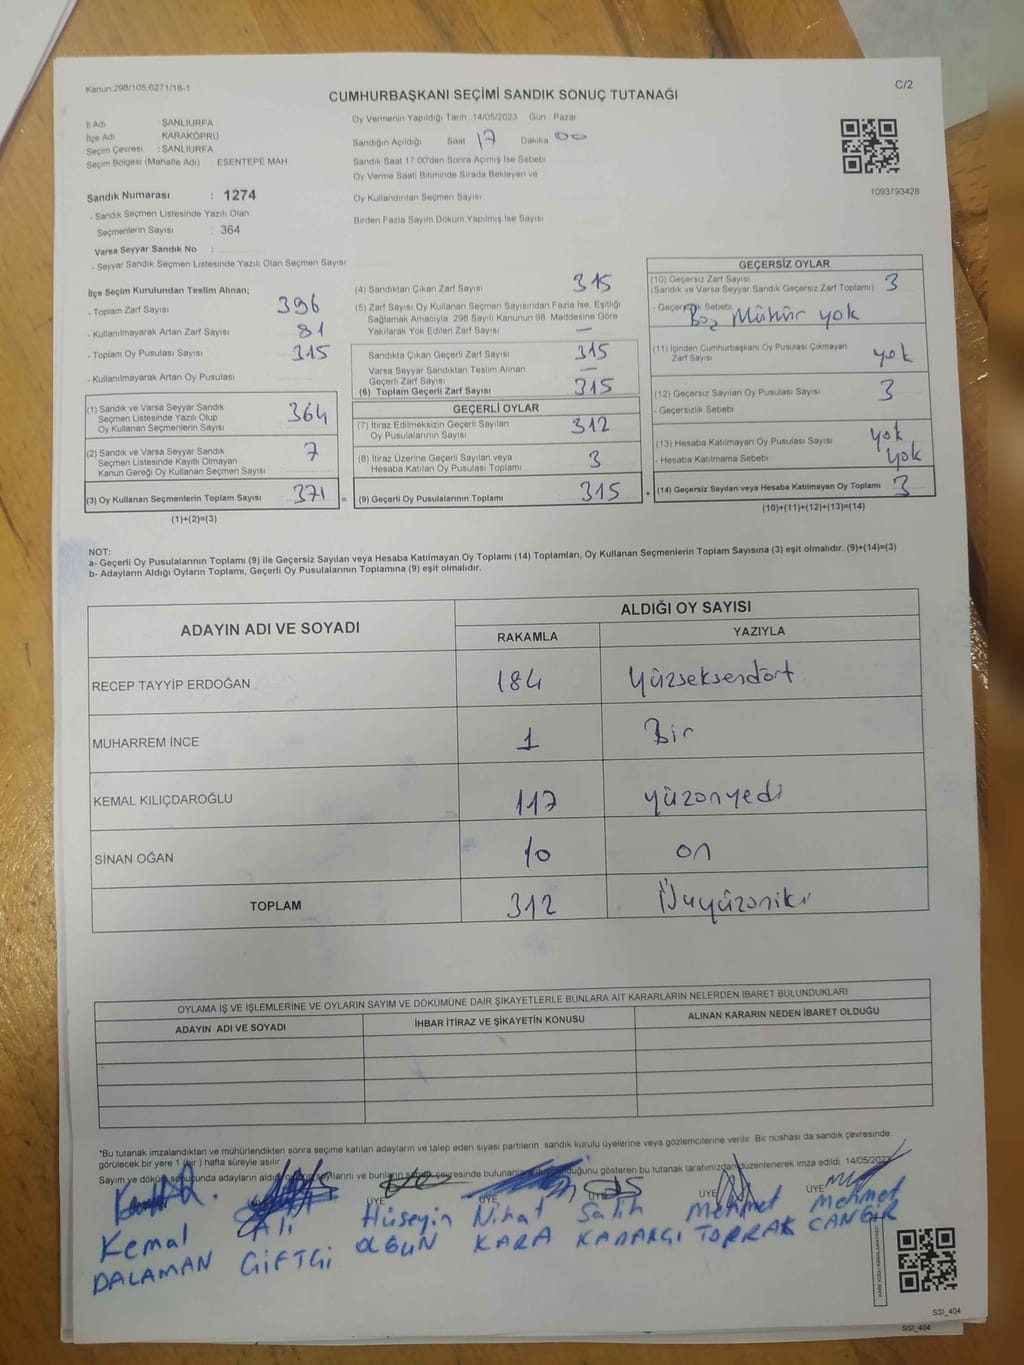 Kanun;298/105,6271/18-1
C/2
CUMHURBAŞKANI SEÇİMİ SANDIK SONUÇ TUTANAĞI
İl Adı ŞANLIURFA
İlçe Adı KARAKÖPRÜ
Seçim Çevresi : ŞANLIURFA
Seçim Bölgesi (Mahalle Adı) ESENTEPE MAH
Sandık Numarası : 1274
- Sandık Seçmen Listesinde Yazılı Olan
Seçmenlerin Sayısı : 364
Varsa Seyyar Sandık No :
- Seyyar Sandık Seçmen Listesinde Yazılı Olan Seçmen Sayısı
Oy Vermenin Yapıldığı Tarih 14/05/2023 Gün Pazar
Sandığın Açıldığı Saat 17 Dakika 00
Sandık Saat 17.00'den Sonra Açımış İse Sebebi
Oy Verme Saati Bitiminde Sırada Bekleyen ve
Oy Kullandırılan Seçmen Sayısı
Birden Fazla Sayım Döküm Yapılmış İse Sayısı
1093793428
İlçe Seçim Kurulundan Teslim Alınan;
- Toplam Zarf Sayısı 396
- Kullanılmayarak Artan Zarf Sayısı 81
- Toplam Oy Pusulası Sayısı 315
- Kullanılmayarak Artan Oy Pusulası
(1) Sandık ve Varsa Seyyar Sandık
Seçmen Listesinde Yazılı Olup
Oy Kullanan Seçmenlerin Sayısı 364
(2) Sandık ve Varsa Seyyar Sandık
Seçmen Listesinde Kayıtlı Olmayan
Kanun Gereği Oy Kullanan Seçmen Sayısı 7
(3) Oy Kullanan Seçmenlerin Toplam Sayısı 371 =
(1)+(2)=(3)
(4) Sandıktan Çıkan Zarf Sayısı 315
(5) Zarf Sayısı Oy Kullanan Seçmen Sayısından Fazla İse, Eşitliği
Sağlamak Amacıyla, 298 Sayılı Kanunun 98. Maddesine Göre
Yakılarak Yok Edilen Zarf Sayısı —
Sandıkta Çıkan Geçerli Zarf Sayısı 315
Varsa Seyyar Sandıktan Teslim Alınan
Geçerli Zarf Sayısı —
(6) Toplam Geçerli Zarf Sayısı 315
GEÇERLİ OYLAR
(7) İtiraz Edilmeksizin Geçerli Sayılan
Oy Pusulalarının Sayısı 312
(8) İtiraz Üzerine Geçerli Sayılan veya
Hesaba Katılan Oy Pusulası Toplamı 3
(9) Geçerli Oy Pusulalarının Toplamı 315 +
GEÇERSİZ OYLAR
(10) Geçersiz Zarf Sayısı
(Sandık ve Varsa Seyyar Sandık Geçersiz Zarf Toplamı) 3
- Geçersizlik Sebebi
Boş Mühür yok
(11) İçinden Cumhurbaşkanı Oy Pusulası Çıkmayan
Zarf Sayısı yok
(12) Geçersiz Sayılan Oy Pusulası Sayısı 3
- Geçersizlik Sebebi
(13) Hesaba Katılmayan Oy Pusulası Sayısı yok
- Hesaba Katılmama Sebebi yok
(14) Geçersiz Sayılan veya Hesaba Katılmayan Oy Toplamı 3
(10)+(11)+(12)+(13)=(14)
NOT:
a- Geçerli Oy Pusulalarının Toplamı (9) ile Geçersiz Sayılan veya Hesaba Katılmayan Oy Toplamı (14) Toplamları, Oy Kullanan Seçmenlerin Toplam Sayısına (3) eşit olmalıdır. (9)+(14)=(3)
b- Adayların Aldığı Oyların Toplamı, Geçerli Oy Pusulalarının Toplamına (9) eşit olmalıdır.
ADAYIN ADI VE SOYADI ALDIĞI OY SAYISI
RAKAMLA YAZIYLA
RECEP TAYYİP ERDOĞAN 184 yüzseksendört
MUHARREM İNCE 1 Bir
KEMAL KILIÇDAROĞLU 117 yüzonyedi
SİNAN OĞAN 10 on
TOPLAM 312 Üçyüzoniki
OYLAMA İŞ VE İŞLEMLERİNE VE OYLARIN SAYIM VE DÖKÜMÜNE DAİR ŞİKAYETLERLE BUNLARA AİT KARARLARIN NELERDEN İBARET BULUNDUKLARI
ADAYIN ADI VE SOYADI İHBAR İTİRAZ VE ŞİKAYETİN KONUSU ALINAN KARARIN NEDEN İBARET OLDUĞU
*Bu tutanak imzalandıktan ve mühürlendikten sonra seçime katılan adayların ve talep eden siyasi partilerin sandık kurulu üyelerine veya gözlemcilerine verilir. Bir nüshası da sandık çevresinde
görülecek bir yere 1 (bir) hafta süreyle asılır.
Sayım ve döküm sonucunda adayların aldığı oy sayılarını ve bunların sandık çevresinde bulunanlara duyurulduğunu gösteren bu tutanak tarafımızdan düzenlenerek imza edildi. 14/05/2023
ÜYE ÜYE ÜYE ÜYE ÜYE
Kemal Ali Hüseyin Nihat Salih Mehmet Mehmet
DALAMAN ÇİFTÇİ OLGUN KARA KARAKÇI TOPRAK CANGİR
SSI_404
SSI_404